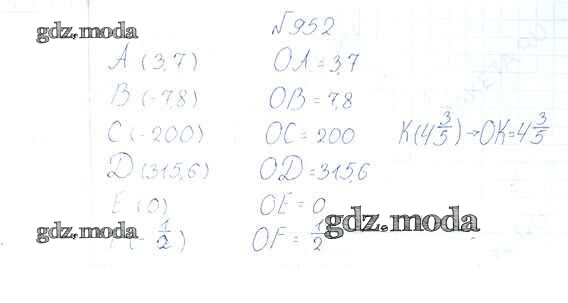 №952
gdz.moda
A (3,7) OA = 3,7
B (-7,8) OB = 7,8
C (-200) OC = 200 K(4 3/5) → OK = 4 3/5
D (315,6) OD = 315,6
E (0) OE = 0
gdz.moda gdz.moda
(- 1/2) OF = 1/2